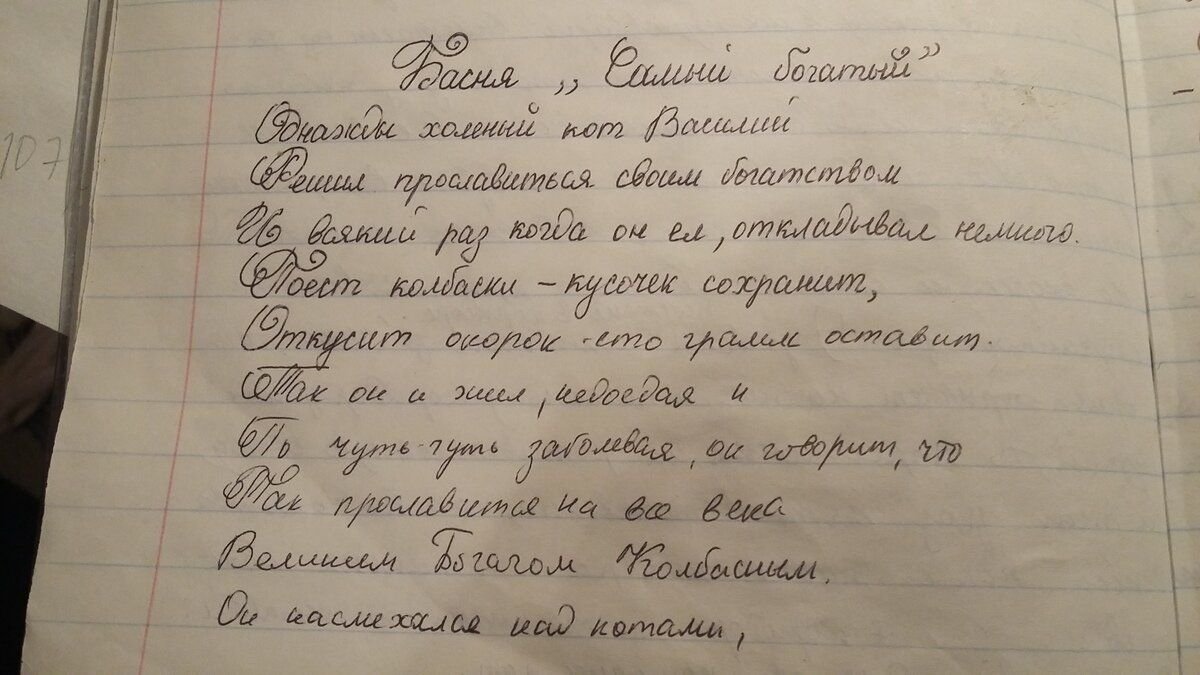 Басня „Самый богатый"
Однажды холеный кот Василий
Решил прославиться своим богатством
И всякий раз когда он ел, откладывал немного.
Поест колбаски - кусочек сохранит,
Откусит окорок - сто грамм оставит.
Так он и жил, недоедая и
По чуть-чуть заболевая, он говорит, что
Так прославится на все века
Великим Богачом Колбасным.
Он насмехался над котами,
107